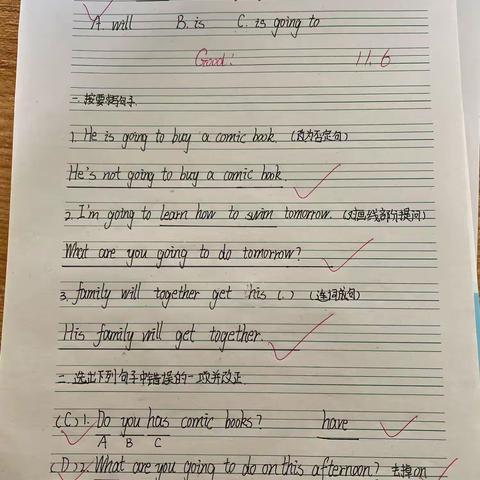 A. will B. is C. is going to
Good! 11.6
一. 按要求写句子.
1. He is going to buy a comic book. (改为否定句)
He's not going to buy a comic book.
2. I'm going to learn how to swim tomorrow. (对画线部分提问)
What are you going to do tomorrow?
3. family will together get his (.) (连词成句)
His family will get together.
二. 选出下列句子中错误的一项并改正.
(C) 1. Do you has comic books? have
A B C
(D) 2. What are you going to do on this afternoon? 去掉on